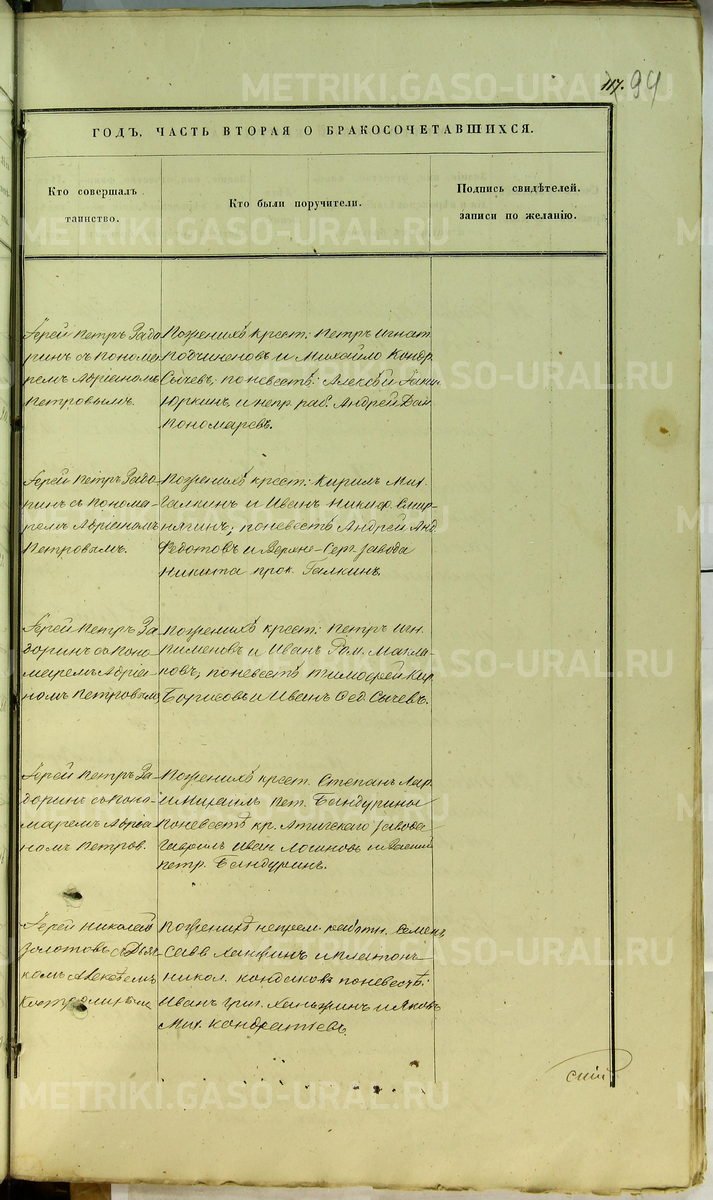 117. 94
METRIKI.GASO-URAL.RU
ГОДЪ, ЧАСТЬ ВТОРАЯ О БРАКОСОЧЕТАВШИХСЯ.
Кто совершалъ
таинство.
Кто были поручители.
Подпись свидѣтелей.
записи по желанію.
Іерей Петръ Задо
ринъ съ понома
ремъ Адріаномъ
Петровымъ.
Пожениху крест: Петръ Игнат
и Михайло Кондр.
Сычевъ, поневестѣ: Алексѣй
Юркинъ, и непр. раб. Андрей Дан
Пономаревъ.
Іерей Петръ Задо-
ринъ съ понома-
ремъ Адріаномъ
Петровымъ.
Пожениху крест: Кирилъ Мих.
Галкинъ и Иванъ Никиф. Смир-
нягинъ; поневестѣ Андрей Анд.
Федотовъ и Верхне-Серг. завода
Никита Прок. Галкинъ.
Іерей Петръ За-
доринъ съ поно-
маремъ Адріа-
номъ Петровымъ,
Пожениху крест: Петръ Игн.
Пименовъ и Иванъ Ром.
поневестѣ Тимофей Кир
Борисовъ и Иванъ Фед. Сычевъ.
Іерей Петръ За-
доринъ съ поно-
маремъ Адріа-
номъ Петров.
Пожениху крест. Степанъ Лар.
и Михаилъ Пет. Бандурины
поневестѣ кр. Атигскаго завода
Гаврилъ Иван. Логиновъ и
Петр. Бандуринъ.
Іерей Николай
Золотовъ съ Дьяч-
комъ Алексѣемъ
Пожениху непрем. работн. Семенъ
Савв. и Платонъ
Никол. Кондаковъ поневестѣ:
Иванъ Григ. и Яковъ
Мих. Кондратьевъ.